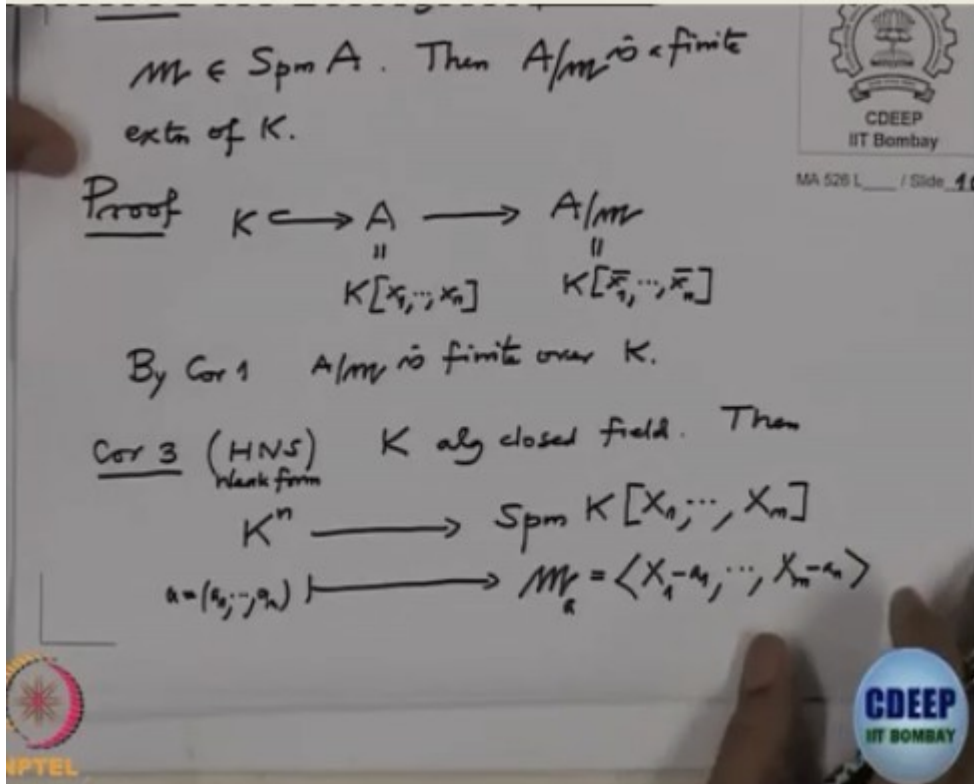 𝔪 ∈ Spm A. Then A/𝔪 is a finite
extn of K.
CDEEP
IIT Bombay
MA 526 L___ / Slide
Proof K ↪ A ⟶ A/𝔪
= =
K[x₁,⋯,xₙ] K[x̄₁,⋯,x̄ₙ]
By Cor 1 A/𝔪 is finite over K.
Cor 3 (HNS) K alg closed field. Then
Weak form
Kⁿ ⟶ Spm K[X₁,⋯,Xₙ]
a=(a₁,⋯,aₙ) ⟼ 𝔪ₐ = ⟨X₁-a₁,⋯,Xₙ-aₙ⟩
NPTEL
CDEEP
IIT BOMBAY